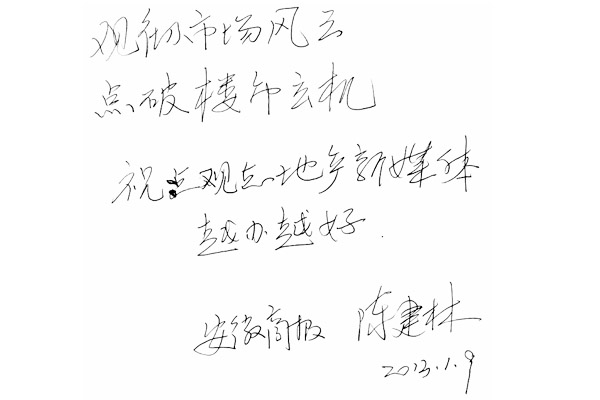 观彻市场风云
点破楼市玄机
祝点观点地产新媒体
越办越好.
安徽商报 陈建林
2013.1.9